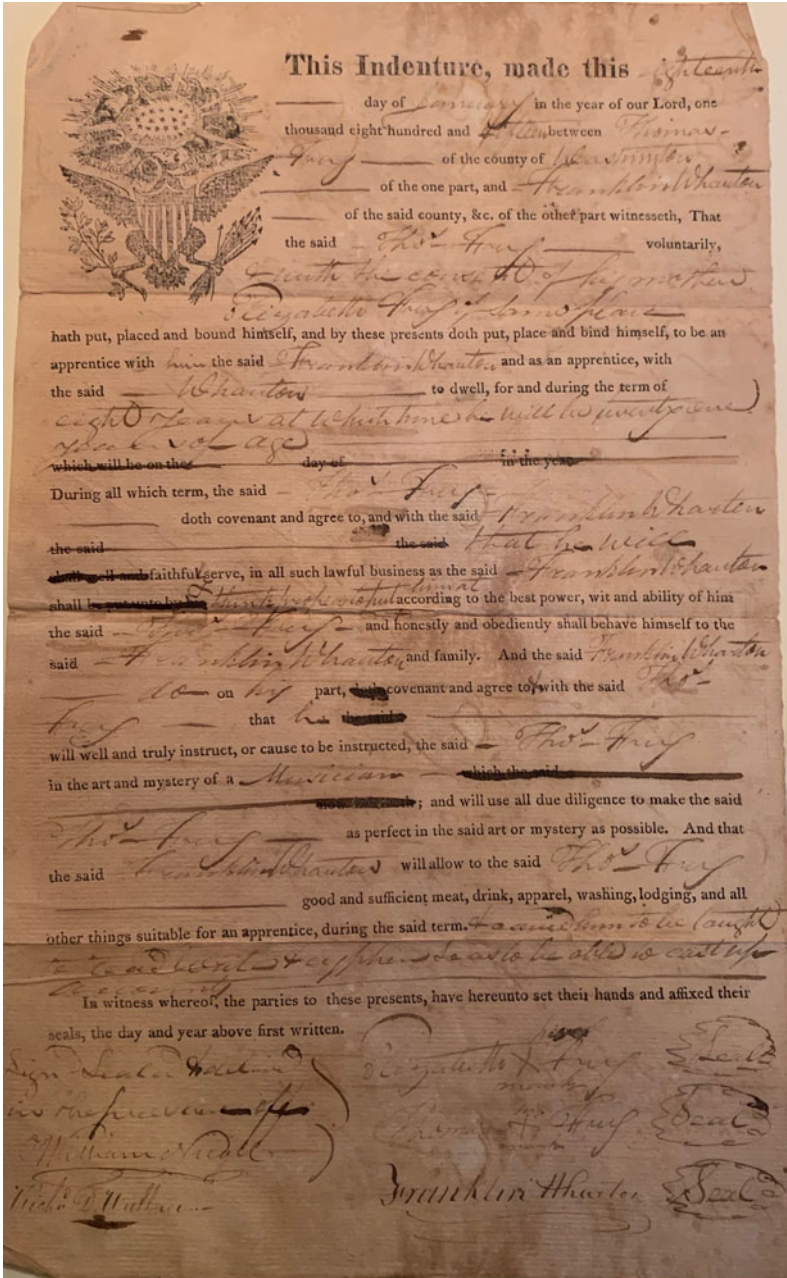 This Indenture, made this eighteenth
day of January in the year of our Lord, one
thousand eight hundred and between Thomas
Frey of the county of Washington
of the one part, and Franklin Wharton
of the said county, &c. of the other part witnesseth, That
the said Thos Frey voluntarily,
with the consent of his mother
Elizabeth Frey of same place
hath put, placed and bound himself, and by these presents doth put, place and bind himself, to be an
apprentice with him the said Franklin Wharton and as an apprentice, with
the said Wharton to dwell, for and during the term of
eight years at which time he will be twenty one
years of age
which will be on the day of in the year
During all which term, the said Thos Frey
doth covenant and agree to, and with the said Franklin Wharton
the said the said that he will
shall well and faithful serve, in all such lawful business as the said Franklin Wharton
shall be put unto by according to the best power, wit and ability of him
the said Thos Frey and honestly and obediently shall behave himself to the
said Franklin Wharton and family. And the said Franklin Wharton
do on his part, doth covenant and agree to & with the said Thos
Frey that he the said
will well and truly instruct, or cause to be instructed, the said Thos Frey
in the art and mystery of a Musician which the said
; and will use all due diligence to make the said
Thos Frey as perfect in the said art or mystery as possible. And that
the said Franklin Wharton will allow to the said Thos Frey
good and sufficient meat, drink, apparel, washing, lodging, and all
other things suitable for an apprentice, during the said term. & cause him to be taught
to read write & cypher so as to be able to cast up
accounts
In witness whereof, the parties to these presents, have hereunto set their hands and affixed their
seals, the day and year above first written.
Sign Seal'd & deliv'd
in the presence of
William
Elizabeth X Frey Seal
mark
Thomas Frey Seal
Franklin Wharton Seal